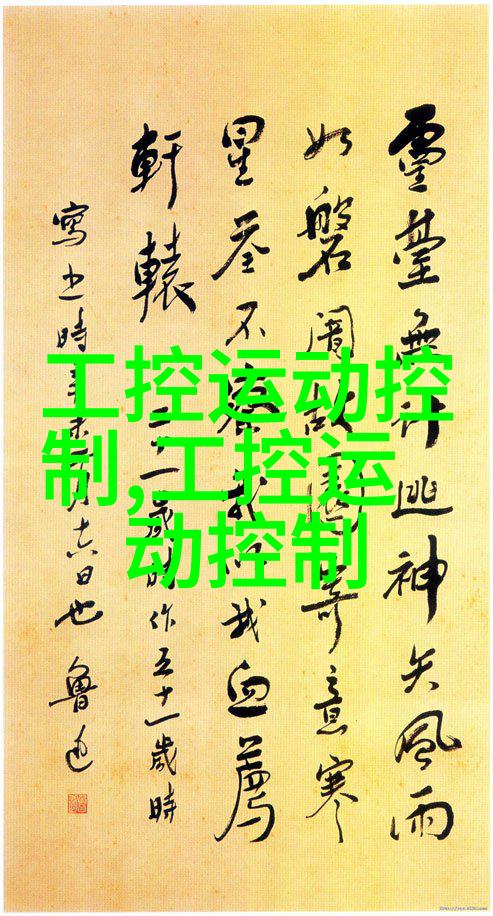 工控运动控
制,工控运
动控制
靈臺無計逃神矢風雨
如磐闇故園寄意寒
星荃不察我以我血薦
軒轅
二十一歲時作五十一歲時
寫之時辛未二月十六日也 魯迅